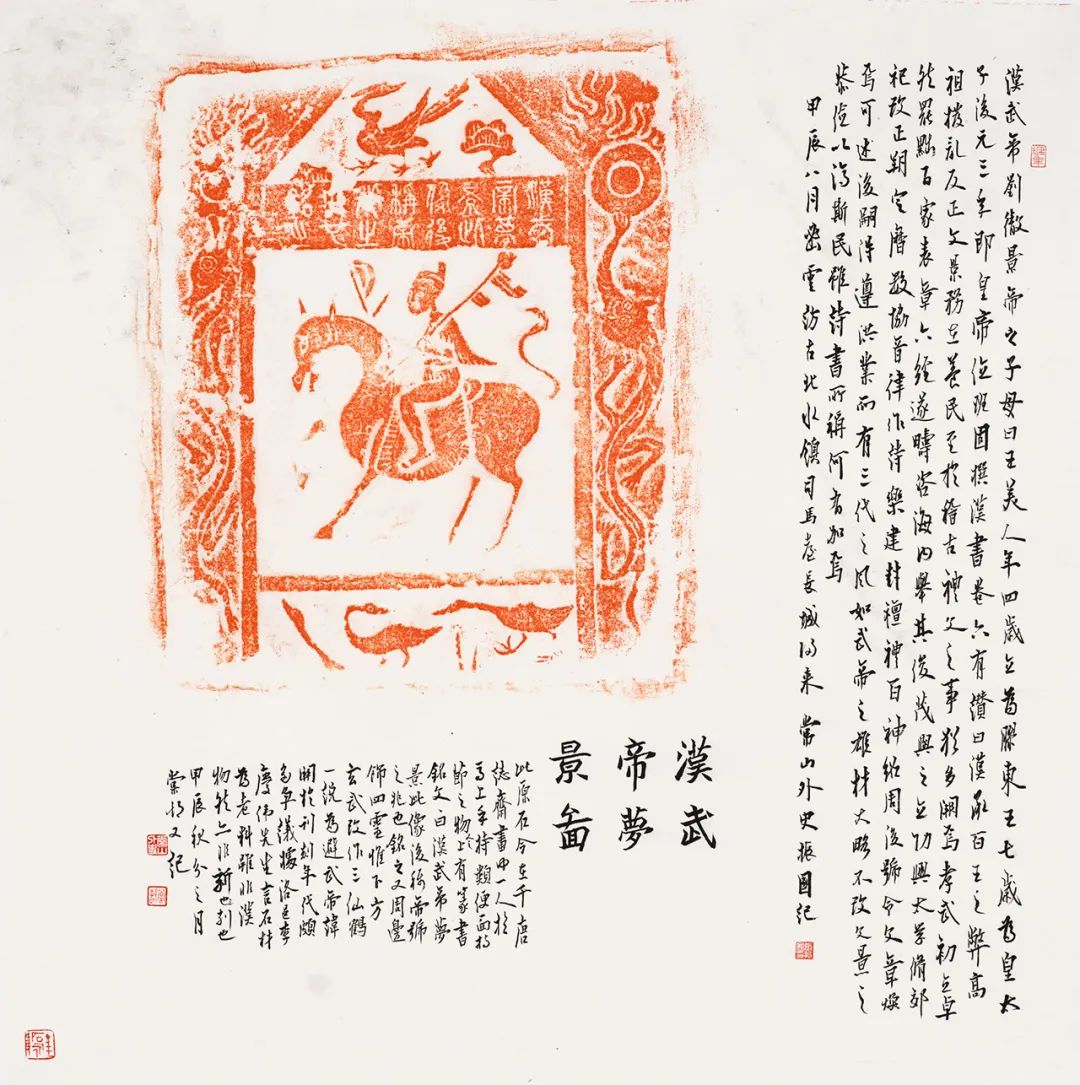 漢武帝劉徹景帝之子母曰王美人年四歲立為膠東王七歲為皇太
子後元三年即皇帝位班固撰漢書卷六有讚曰漢承百王之弊高
祖撥亂反正文景務在養民至於稽古禮文之事猶多闕焉孝武初立卓
然罷黜百家表章六經遂疇咨海內舉其俊茂興之立功興太學脩郊
祀改正朔定曆數協音律作詩樂建封禪禮百神紹周後號令文章煥
焉可述後嗣得遵洪業而有三代之風如武帝之雄材大略不改文景之
恭儉以濟斯民雖詩書所稱何有加焉
甲辰八月密雲訪古北水鎮司馬臺長城歸來 常山外史振國紀
漢武
帝夢
景此
像後
稱帝
號之
兆也
銘之
漢武
帝夢
景啚
此原石今在千唐
誌齋畫中一人於
馬上手持類便面持
節之物於上有篆書
銘文曰漢武帝夢
景此像後稱帝號
之兆也銘之又周邊
飾四靈惟下方
玄武改作三仙鶴
一說為避武帝諱
關於刊刻年代頗
多爭議據洛邑李
偉先生言石材
為老料雖非漢
物於亦非新也刻也
甲辰秋分之月
又紀